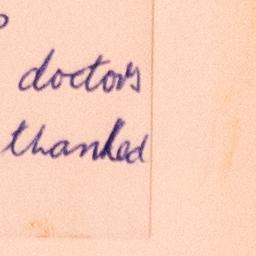 doctors
thanked